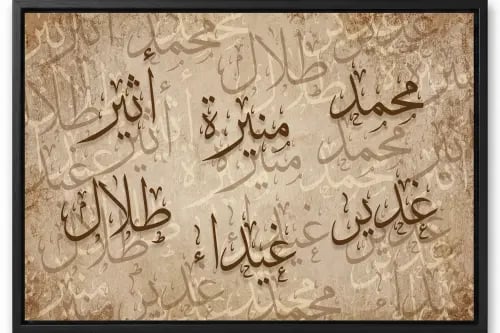 محمد منيرة أثير
غدير غيداء طلال